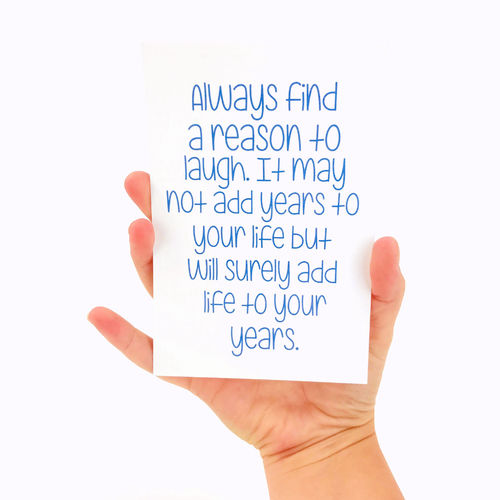 Always find
a reason to
laugh. It may
not add years to
your life but
will surely add
life to your
years.